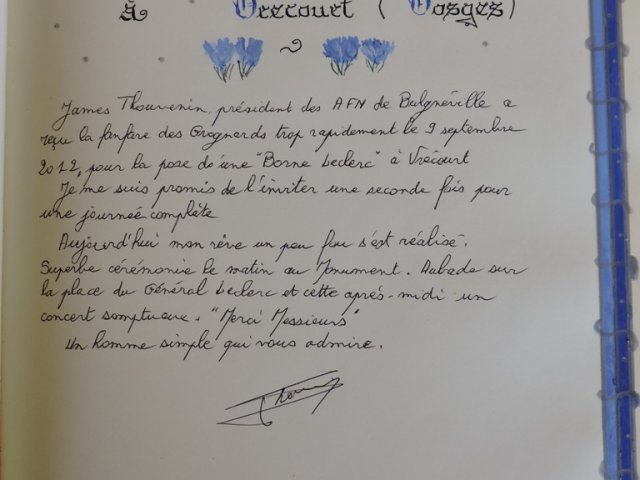 à Vrecourt (Vosges)
James Thouvenin, président des AFN de Bulgnéville a
reçu la fanfare des Grognards trop rapidement le 9 septembre
2012, pour la pose d'une "Borne Leclerc" à Vrécourt
Je me suis promis de l'inviter une seconde fois pour
une journée complète
Aujourd'hui mon rêve un peu fou s'est réalisé.
Superbe cérémonie le matin au Monument. Aubade sur
la place du Général Leclerc et cette après-midi un
concert somptueux. "Merci Messieurs"
Un homme simple qui vous admire.